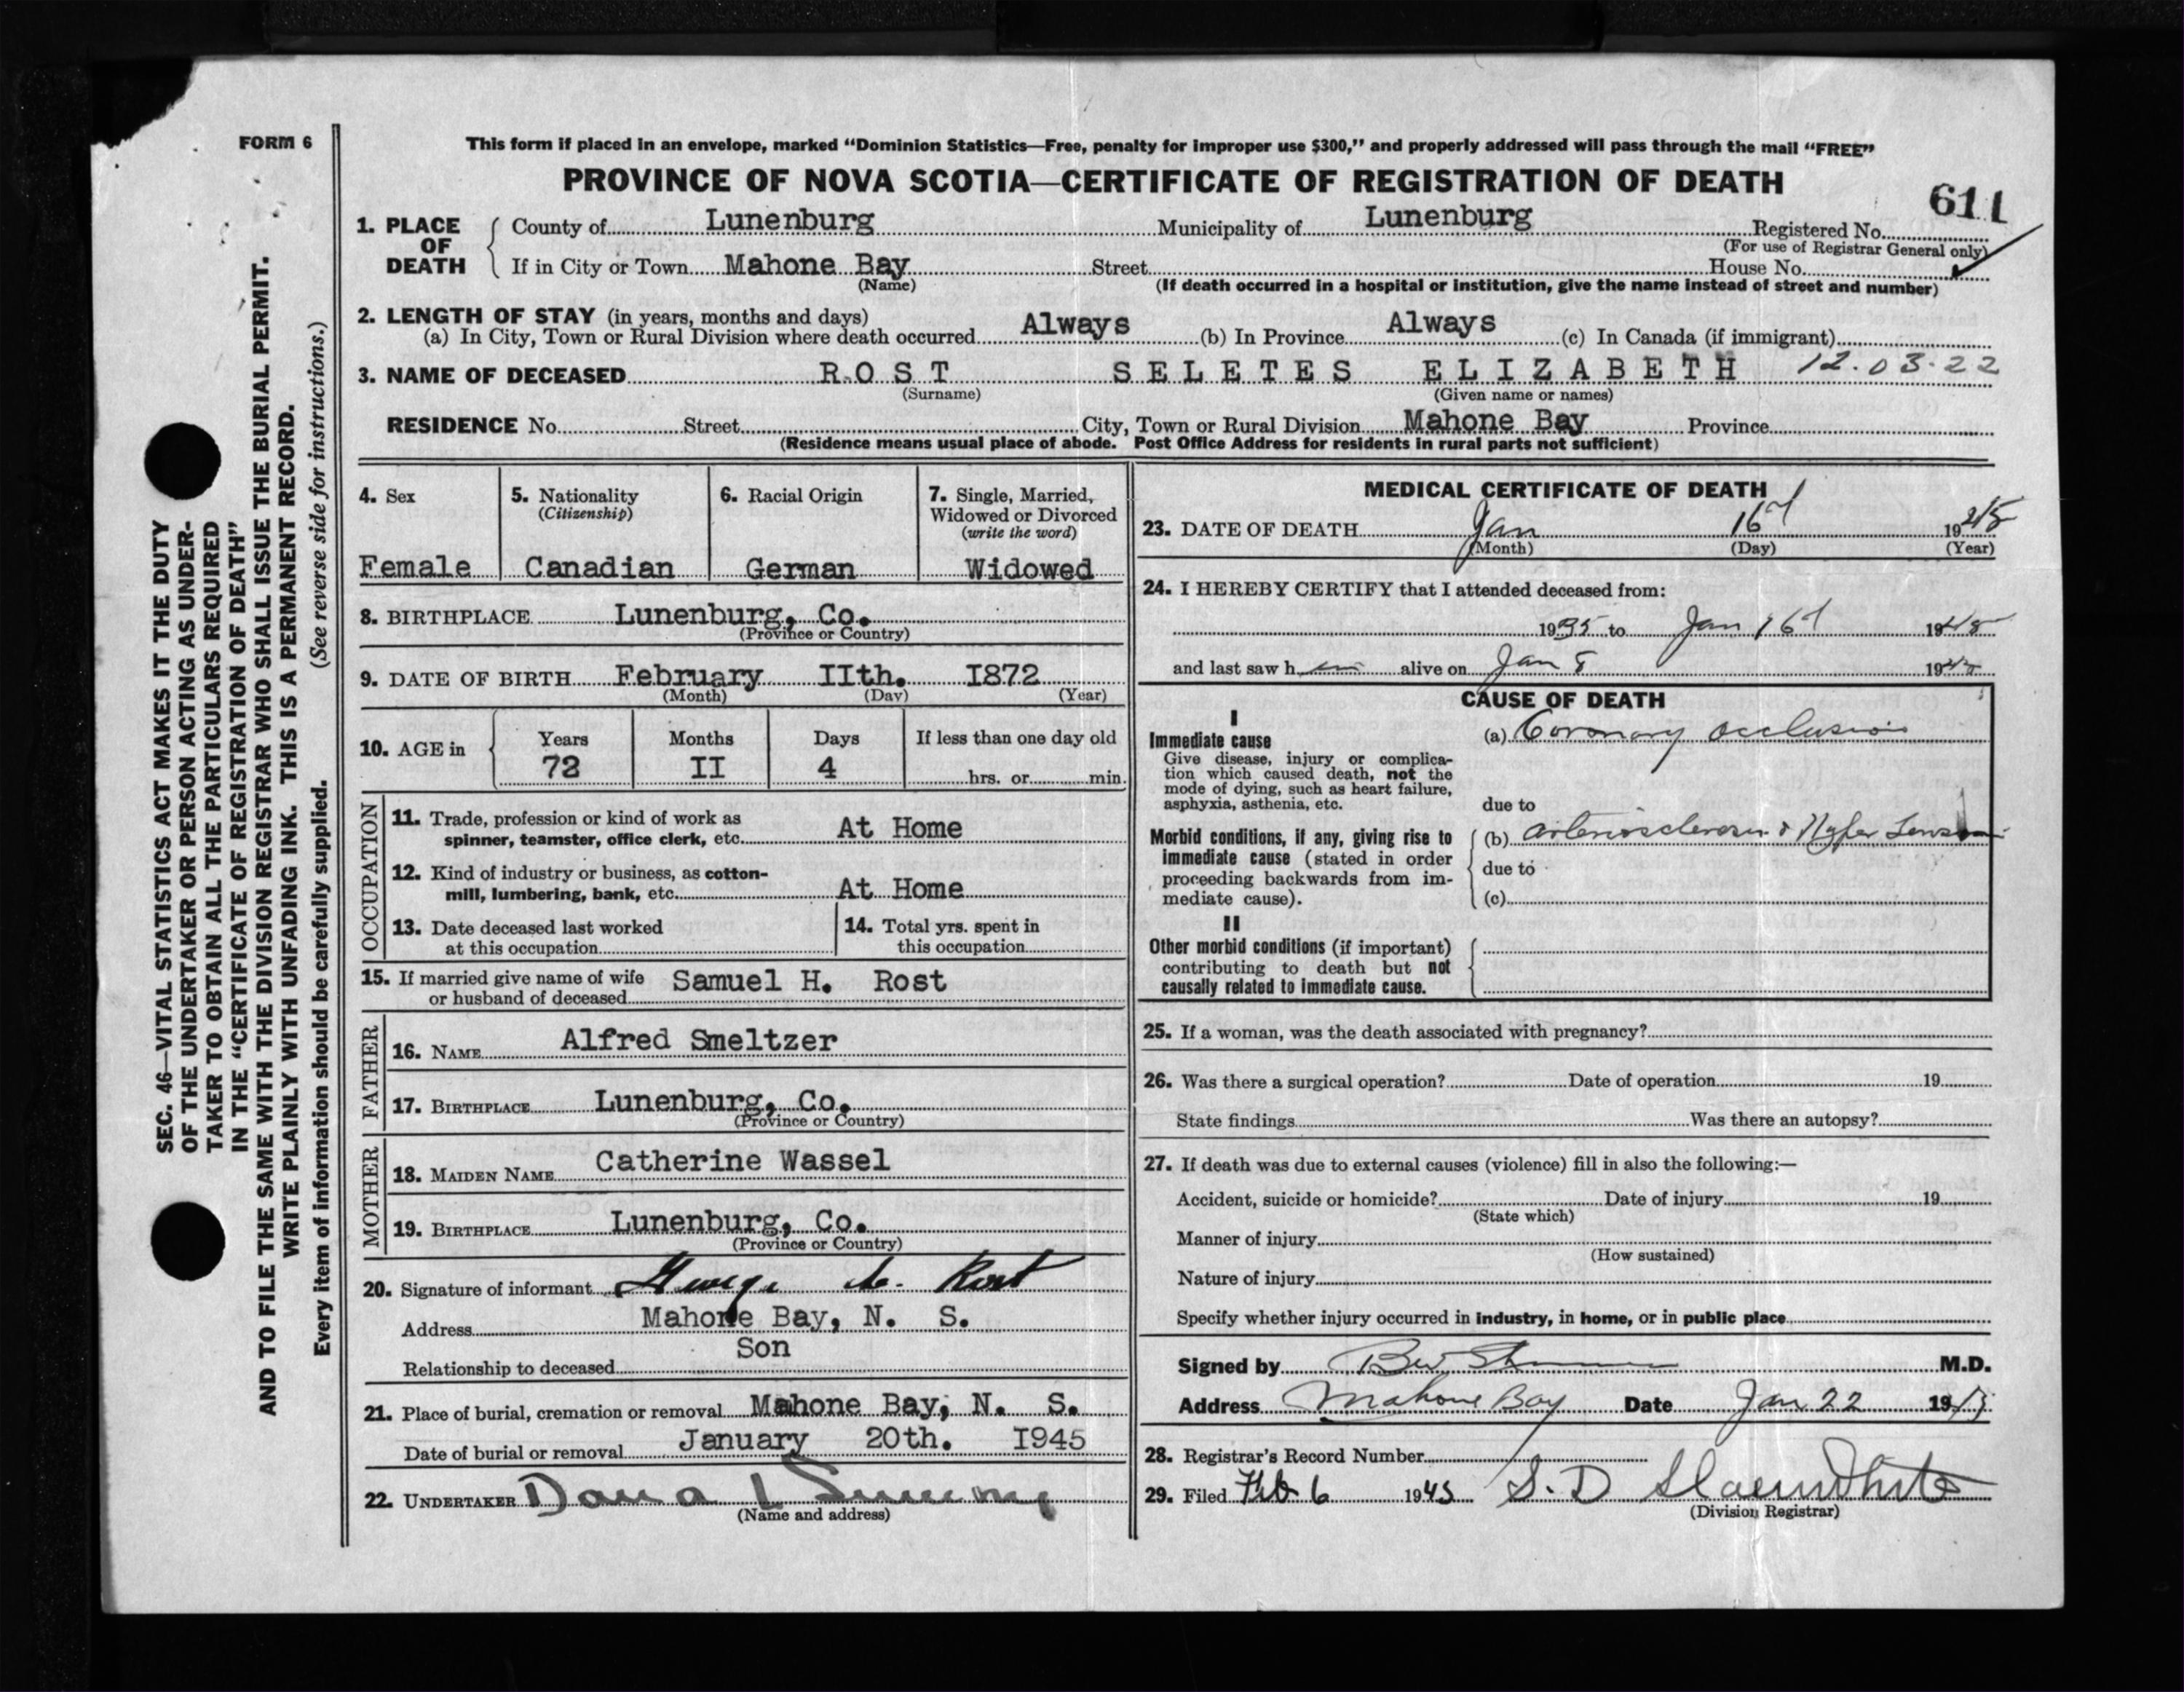 FORM 6
SEC. 46—VITAL STATISTICS ACT MAKES IT THE DUTY
OF THE UNDERTAKER OR PERSON ACTING AS UNDER-
TAKER TO OBTAIN ALL THE PARTICULARS REQUIRED
IN THE "CERTIFICATE OF REGISTRATION OF DEATH"
AND TO FILE THE SAME WITH THE DIVISION REGISTRAR WHO SHALL ISSUE THE BURIAL PERMIT.
WRITE PLAINLY WITH UNFADING INK. THIS IS A PERMANENT RECORD.
Every item of information should be carefully supplied. (See reverse side for instructions.)
This form if placed in an envelope, marked "Dominion Statistics—Free, penalty for improper use $300," and properly addressed will pass through the mail "FREE"
PROVINCE OF NOVA SCOTIA—CERTIFICATE OF REGISTRATION OF DEATH
611
1. PLACE OF DEATH County of Lunenburg Municipality of Lunenburg Registered No.
(For use of Registrar General only)
If in City or Town Mahone Bay Street House No.
(Name) (If death occurred in a hospital or institution, give the name instead of street and number)
2. LENGTH OF STAY (in years, months and days)
(a) In City, Town or Rural Division where death occurred Always (b) In Province Always (c) In Canada (if immigrant)
3. NAME OF DECEASED ROST SELETES ELIZABETH 12.03.22
(Surname) (Given name or names)
RESIDENCE No. Street City, Town or Rural Division Mahone Bay Province
(Residence means usual place of abode. Post Office Address for residents in rural parts not sufficient)
4. Sex 5. Nationality 6. Racial Origin 7. Single, Married,
(Citizenship) Widowed or Divorced
(write the word)
Female Canadian German Widowed
8. BIRTHPLACE Lunenburg, Co.
(Province or Country)
9. DATE OF BIRTH February IIth. I872
(Month) (Day) (Year)
10. AGE in Years Months Days If less than one day old
72 II 4 hrs. or min.
OCCUPATION
11. Trade, profession or kind of work as
spinner, teamster, office clerk, etc. At Home
12. Kind of industry or business, as cotton-
mill, lumbering, bank, etc. At Home
13. Date deceased last worked 14. Total yrs. spent in
at this occupation this occupation
15. If married give name of wife Samuel H. Rost
or husband of deceased
FATHER
16. NAME Alfred Smeltzer
17. BIRTHPLACE Lunenburg, Co.
(Province or Country)
MOTHER
18. MAIDEN NAME Catherine Wassel
19. BIRTHPLACE Lunenburg, Co.
(Province or Country)
20. Signature of informant George Rost
Address Mahone Bay, N. S.
Relationship to deceased Son
21. Place of burial, cremation or removal Mahone Bay, N. S.
Date of burial or removal January 20th. I945
22. UNDERTAKER Dana L
(Name and address)
MEDICAL CERTIFICATE OF DEATH
23. DATE OF DEATH Jan 16th 1945
(Month) (Day) (Year)
24. I HEREBY CERTIFY that I attended deceased from:
1935 to Jan 16th 1945
and last saw h alive on Jan 8 19
CAUSE OF DEATH
I
Immediate cause (a) Coronary occlusion
Give disease, injury or complica-
tion which caused death, not the
mode of dying, such as heart failure,
asphyxia, asthenia, etc. due to
Morbid conditions, if any, giving rise to (b) arteriosclerosis & Hyper tension
immediate cause (stated in order
proceeding backwards from im- due to
mediate cause). (c)
II
Other morbid conditions (if important)
contributing to death but not
causally related to immediate cause.
25. If a woman, was the death associated with pregnancy?
26. Was there a surgical operation? Date of operation 19
State findings Was there an autopsy?
27. If death was due to external causes (violence) fill in also the following:—
Accident, suicide or homicide? Date of injury 19
(State which)
Manner of injury
(How sustained)
Nature of injury
Specify whether injury occurred in industry, in home, or in public place
Signed by M.D.
Address Mahone Bay Date Jan 22 19
28. Registrar's Record Number
29. Filed Feb 6 1945 S. D
(Division Registrar)